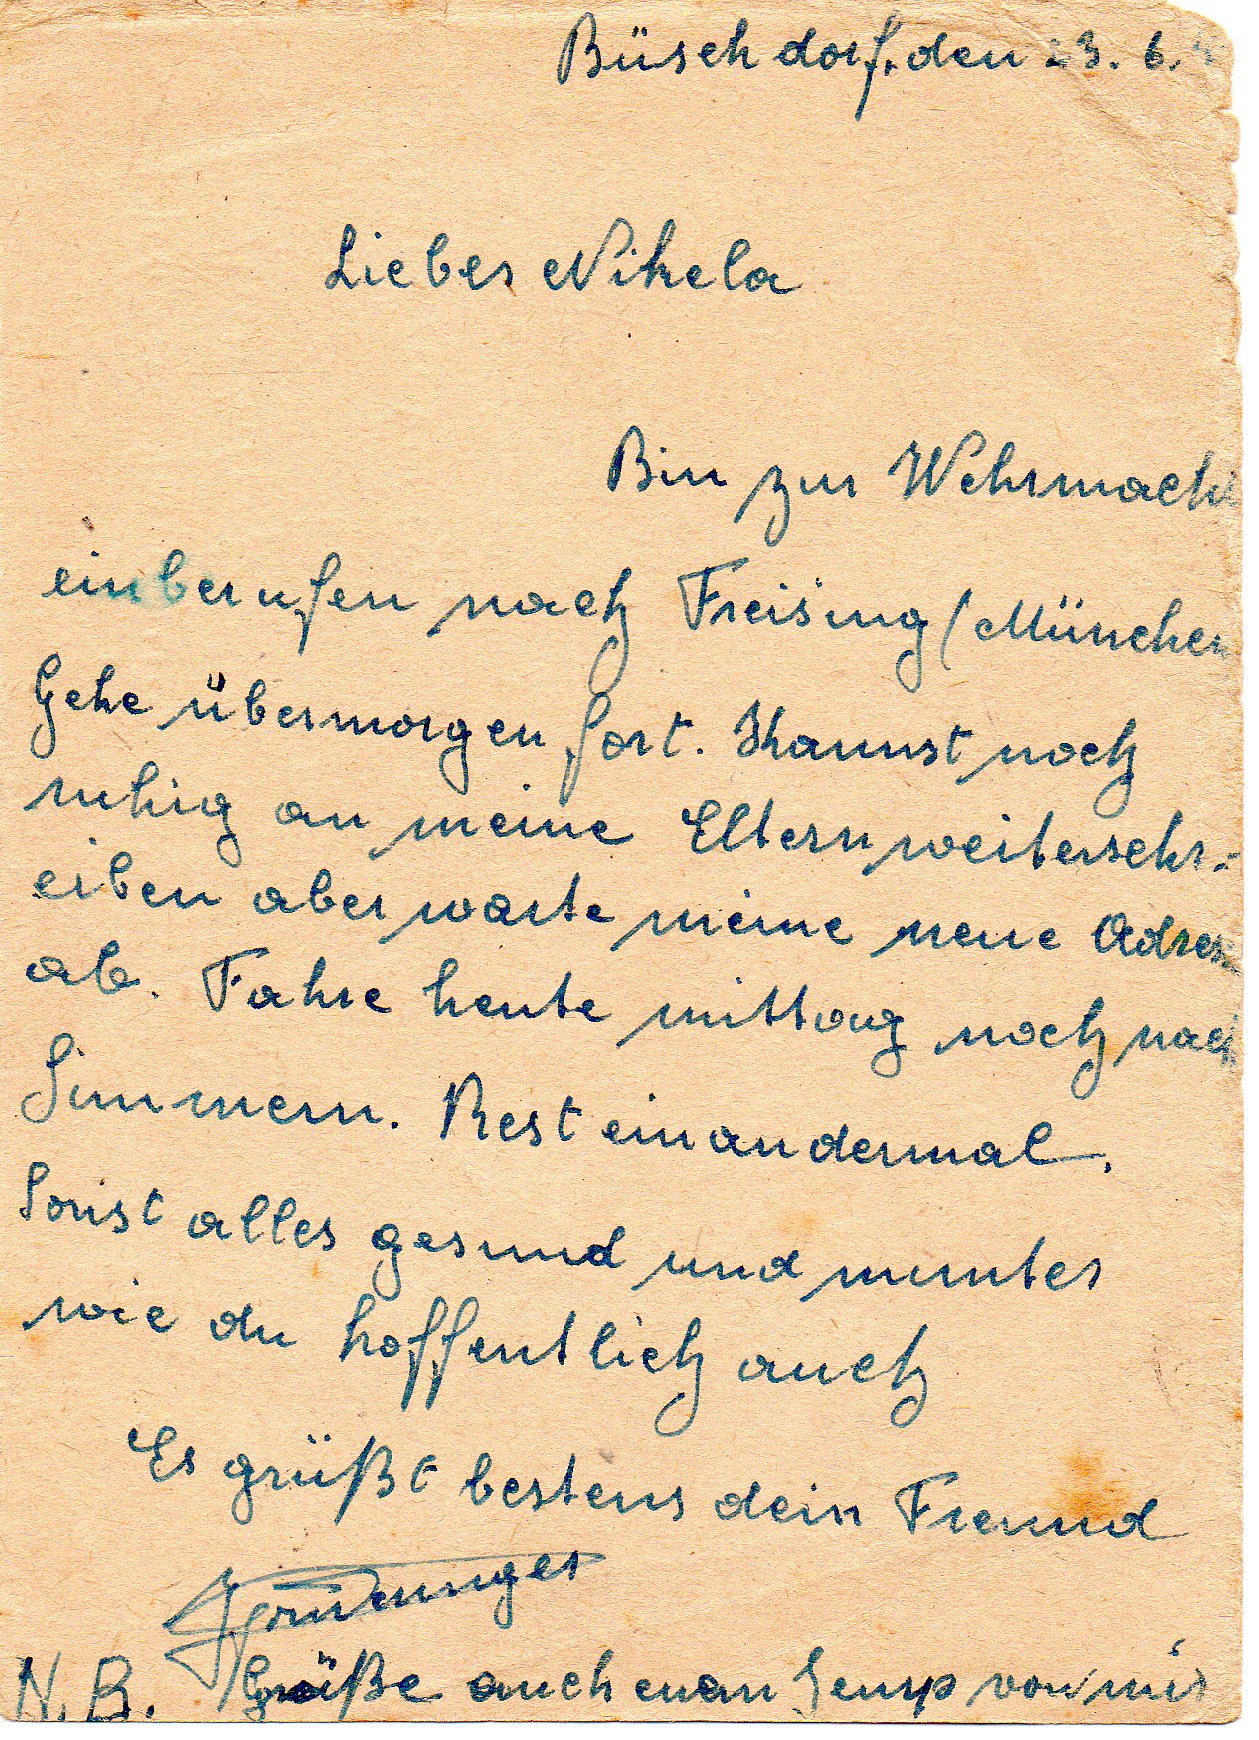 Büschdorf, den 23. 6.
Lieber Nikela
Bin zur Wehrmacht
einberufen nach Freising (München
Gehe übermorgen fort. Kannst noch
ruhig an meine Eltern weiterschr-
eiben aber warte meine neue Adress
ab. Fahre heute mittag noch nach
Simmern. Rest ein andermal.
Sonst alles gesund und munter
wie du hoffentlich auch
Es grüßt bestens dein Freund
N.B. Grüße auch von mir